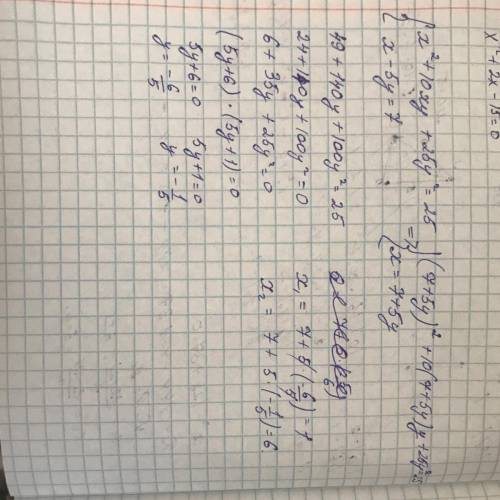 x² + 2x - 15 = 0
{ x² + 10xy + 25y² = 25 => { (7+5y)² + 10(7+5y)y + 25y² = 25
{ x - 5y = 7 { x = 7 + 5y
49 + 140y + 100y² = 25
24 + 140y + 100y² = 0
6 + 35y + 25y² = 0
(5y+6) · (5y+1) = 0
5y+6=0 5y+1=0
y = -6/5 y = -1/5
x₁ = 7 + 5 · (-6/5) = 1
x₂ = 7 + 5 · (-1/5) = 6